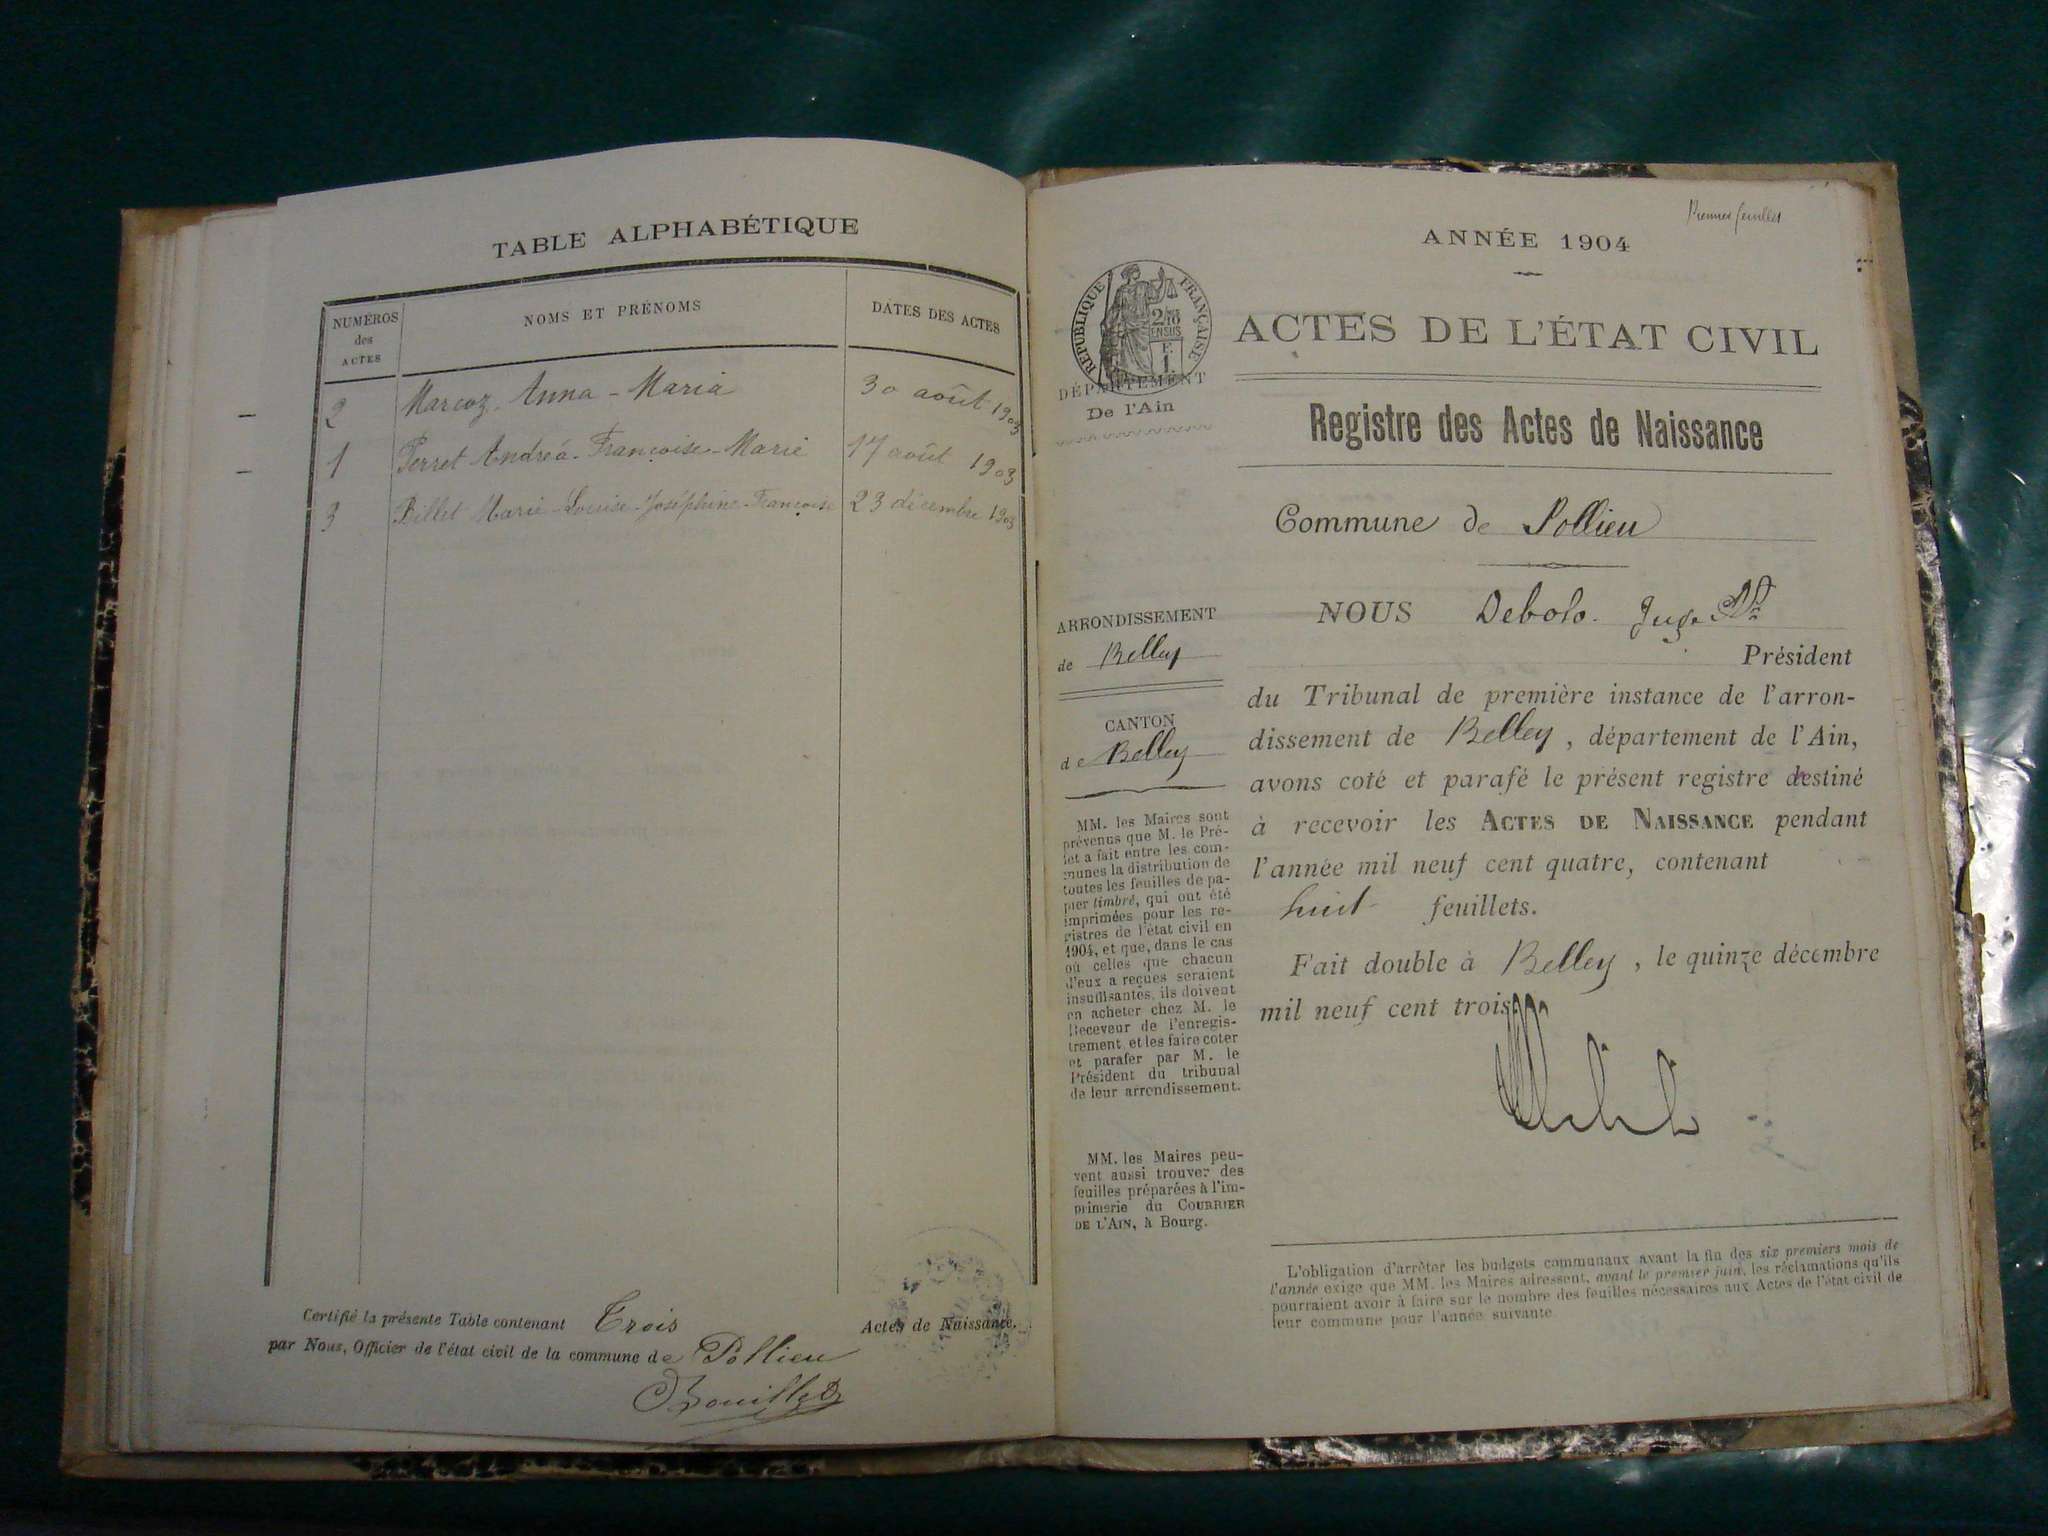 TABLE ALPHABÉTIQUE
NUMÉROS
des
ACTES
NOMS ET PRÉNOMS
DATES DES ACTES
2 Marcoz Anna-Maria 30 août 1903
1 Perret Andréa-Françoise-Marie 17 août 1903
3 Billet Marie-Louise-Joséphine-Françoise 23 décembre 1903
Certifié la présente Table contenant Trois Actes de Naissance.
par Nous, Officier de l'état civil de la commune de Pollieu
Premier feuillet
ANNÉE 1904
RÉPUBLIQUE FRANÇAISE
2/10
EN SUS
F.
1.
DÉPARTEMENT
De l'Ain
ACTES DE L'ÉTAT CIVIL
Registre des Actes de Naissance
Commune de Pollieu
ARRONDISSEMENT
de Belley
CANTON
de Belley
MM. les Maires sont
prévenus que M. le Pré-
fet a fait entre les com-
munes la distribution de
toutes les feuilles de pa-
pier timbré, qui ont été
imprimées pour les re-
gistres de l'état civil en
1904, et que, dans le cas
où celles que chacun
d'eux a reçues seraient
insuffisantes, ils doivent
en acheter chez M. le
Receveur de l'enregis-
trement, et les faire coter
et parafer par M. le
Président du tribunal
de leur arrondissement.
MM. les Maires peu-
vent aussi trouver des
feuilles préparées à l'im-
primerie du COURRIER
DE L'AIN, à Bourg.
NOUS Debolo. Juge
Président
du Tribunal de première instance de l'arron-
dissement de Belley, département de l'Ain,
avons coté et parafé le présent registre destiné
à recevoir les ACTES DE NAISSANCE pendant
l'année mil neuf cent quatre, contenant
huit feuillets.
Fait double à Belley, le quinze décembre
mil neuf cent trois
L'obligation d'arrêter les budgets communaux avant la fin des six premiers mois de
l'année exige que MM. les Maires adressent, avant le premier juin, les réclamations qu'ils
pourraient avoir à faire sur le nombre des feuilles nécessaires aux Actes de l'état civil de
leur commune pour l'année suivante.